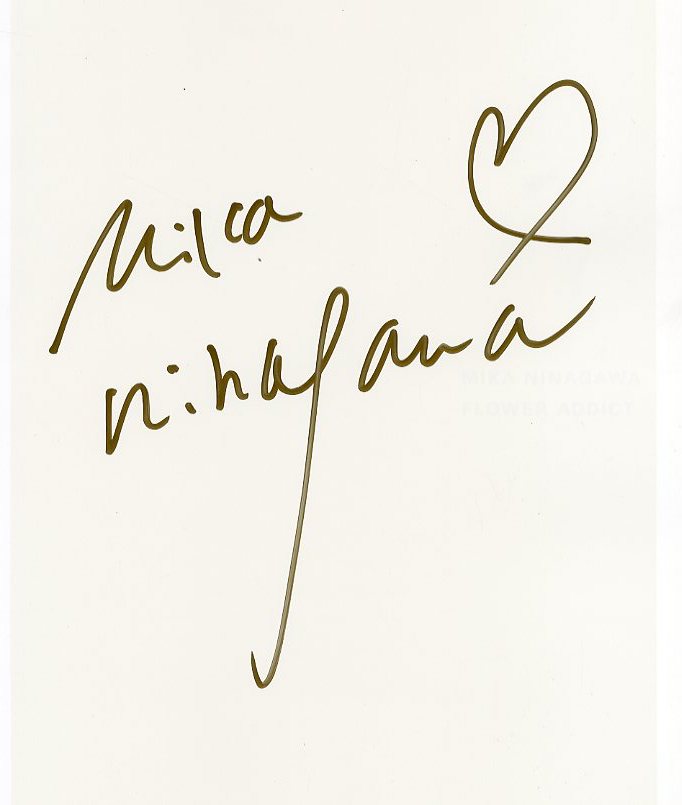 Mika
ninagawa
MIKA NINAGAWA
FLOWER ADDICT